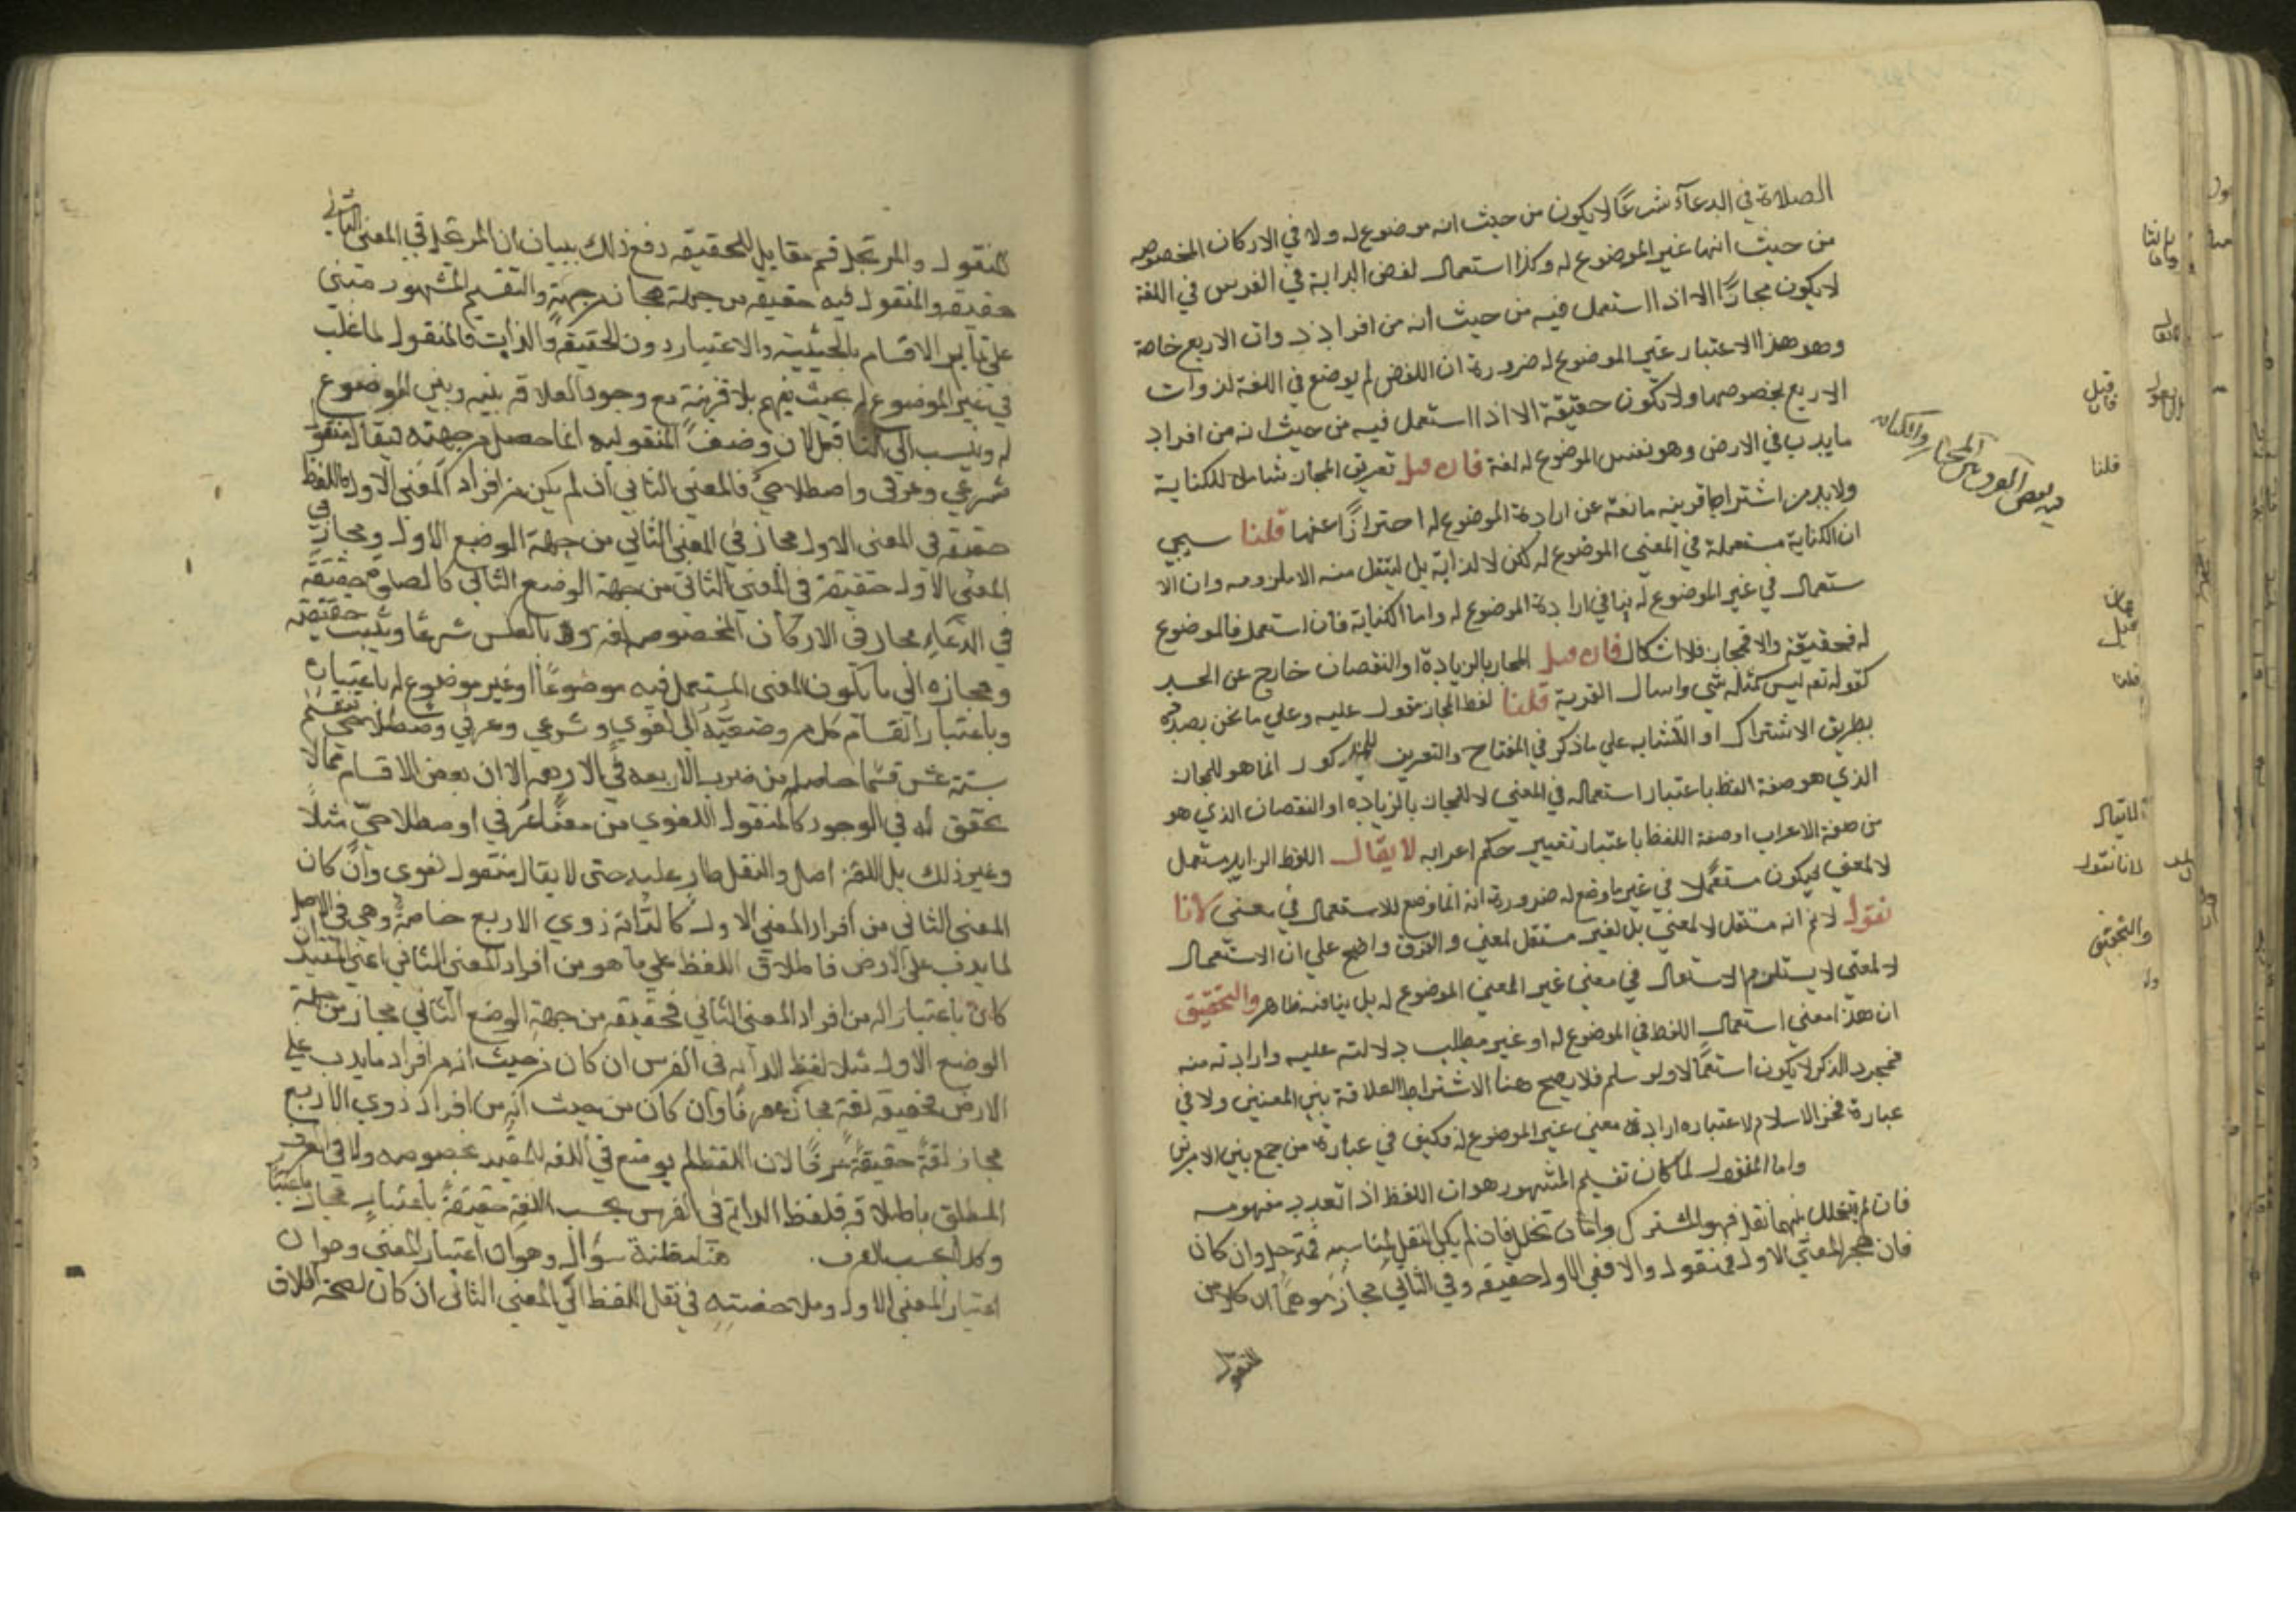 الصلاة في الدعاء شرعًا لا يكون من حيث انه موضوع له ولا في الاركان المخصوصه
من حيث انها غير الموضوع له وكذا استعمال لفض الدابة في الفرس في اللغة
لا يكون مجازًا الا اذا استعمل فيه من حيث انه من افراد ذوات الاربع خاصة
وهو بهذا الاعتبار غير الموضوع له ضرورة ان اللفض لم يوضع في اللغة لذوات
الاربع بخصوصها ولا يكون حقيقة الا اذا استعمل فيه من حيث انه من افراد
ما يدب في الارض وهو نفس الموضوع له لغة فان قيل تعريف المجاز شامل للكناية
ولا بد من اشتراط قرينه مانعة عن ارادة الموضوع له احترازًا عنها قلنا سيجي
ان الكناية مستعملة في المعنى الموضوع له لكن لا لذاته بل لينتقل منه الى ملزومه وان الا
ستعمال في غير الموضوع له ينافي ارادة الموضوع له واما الكناية فان استعمل فالموضوع
له فحقيقة والا فمجاز فلا اشكال فان قيل المجاز بالزيادة او النقصان خارج عن الحد
كقوله تع ليس كمثله شي واسال القرية قلنا لفظ المجاز مقول عليه وعلي ما نحن بصدده
بطريق الاشتراك او التشابه علي ما ذكر في المفتاح والتعريف المذكور انما هو للمجاز
الذي هو صفة اللفظ باعتبار استعماله في المعني لا للمجاز بالزياده او النقصان الذي هو
من صفة الاعراب او صفة اللفظ باعتبار تغيير حكم اعرابه لا يقال اللفظ الزايد مستعمل
لا لمعني فيكون مستعملا في غير ما وضع له ضرورة انه انما وضع للاستعمال في معني لانا
نقول لا نم انه مستعمل لا لمعني بل لغير مستقل لمعني والفرق واضح علي ان الاستعمال
لا لمعني لا يستلزم الاستعمال في معني غير المعني الموضوع له بل ينافيه ظاهر والتحقيق
ان هذا معني استعمال اللفظ في الموضوع له او غير مطلب دلالته عليه وارادته منه
فمجرد الذكر لا يكون استعمالا ولو سلم فلا يصح هنا الاشتراط العلاقة بين المعنيين ولا في
عبارة فخر الاسلام لاعتباره ارادة معني غير الموضوع له فكيف في عبارة من جمع بين الامرين
واما المنقول لما كان تقسيم المشهور هو ان اللفظ اذا تعدد مفهومه
فان لم يتخلل بينهما نقل فهو المشترك وان تخلل فان لم يكن النقل لمناسبه فمرتجل وان كان
فان هجر المعني الاول فمنقول والا ففي الاول حقيقه وفي الثاني مجاز موهما ان كلا من
المنقول
فيه بعض الفرق بين المجاز والكنايه
قيل
فان
قلنا
قلنا
لا يقال
لانا نقول
والتحقيق
المنقول والمرتجل قسم مقابل للحقيقه دفع ذلك ببيان ان المرتجل في المعنى الثاني
حقيقة والمنقول فيه حقيقه من جهة مجاز من جهة والتقسيم المشهور مبني
على تمايز الاقسام بالحيثية والاعتبار دون الحقيقة والذات فالمنقول لما غلب
في غير الموضوع له بحيث يفهم بلا قرينة مع وجود العلاقه بينه وبين الموضوع
له وينسب الى الناقل لان وصف المنقوليه انما حصل من جهته فيقال منقول
شرعي وعرفي واصطلاحي فالمعني الثاني ان لم يكن من افراد المعنى الاول فاللفظ
حقيقة في المعنى الاول مجاز في المعنى الثاني من جهة الوضع الاول ومجاز في
المعنى الاول حقيقة في المعني الثاني من جهة الوضع الثاني كالصلوة حقيقة
في الدعاء مجاز في الاركان المخصوصة لغة وبالعكس شرعًا وينسب حقيقته
ومجازه الي ما يكون المعنى المستعمل فيه موضوعًا او غير موضوع له باعتباره
وباعتبار انقسام كل من وضعيه الى لغوي وشرعي وعرفي واصطلاحي تنقسم
ستة عشر قسمًا حاصله من ضرب الاربعه في الاربعه الا ان بعض الاقسام مما لا
تحقق له في الوجود كالمنقول اللغوي من معنى عرفي او اصطلاحي مثلًا
وغير ذلك بل اللغة اصل والنقل طار عليه حتى لا يقال منقول لغوي وان كان
المعنى الثاني من افراد المعنى الاول كالدابة لذوي الاربع خاصة وهي في الاصل
لما يدب على الارض فاطلاق اللفظ علي ما هو من افراد المعنى الثاني اعني المقيد ان
كان باعتبار انه من افراد المعنى الثاني فحقيقة من جهة الوضع الثاني مجاز من جهة
الوضع الاول مثلا لفظ الدابه في الفرس ان كان من حيث انه من افراد ما يدب علي
الارض فحقيقة لغة مجاز عرفًا وان كان من حيث انه من افراد ذوي الاربع
مجاز لغة حقيقة عرفًا لان اللفظ لم يوضع في اللغه للمقيد بخصوصه ولا في العرف
المطلق باطلاقه فلفظ الدابة في الفرس بحسب اللغة حقيقة باعتبار مجاز باعتبار
وكذا بحسب العرف. هنا مظنة سؤال وهو ان اعتبار المعني وجواب
اعتبار المعنى الاول وملاحضته في نقل اللفظ الي المعنى الثاني ان كان لصحة اطلاق